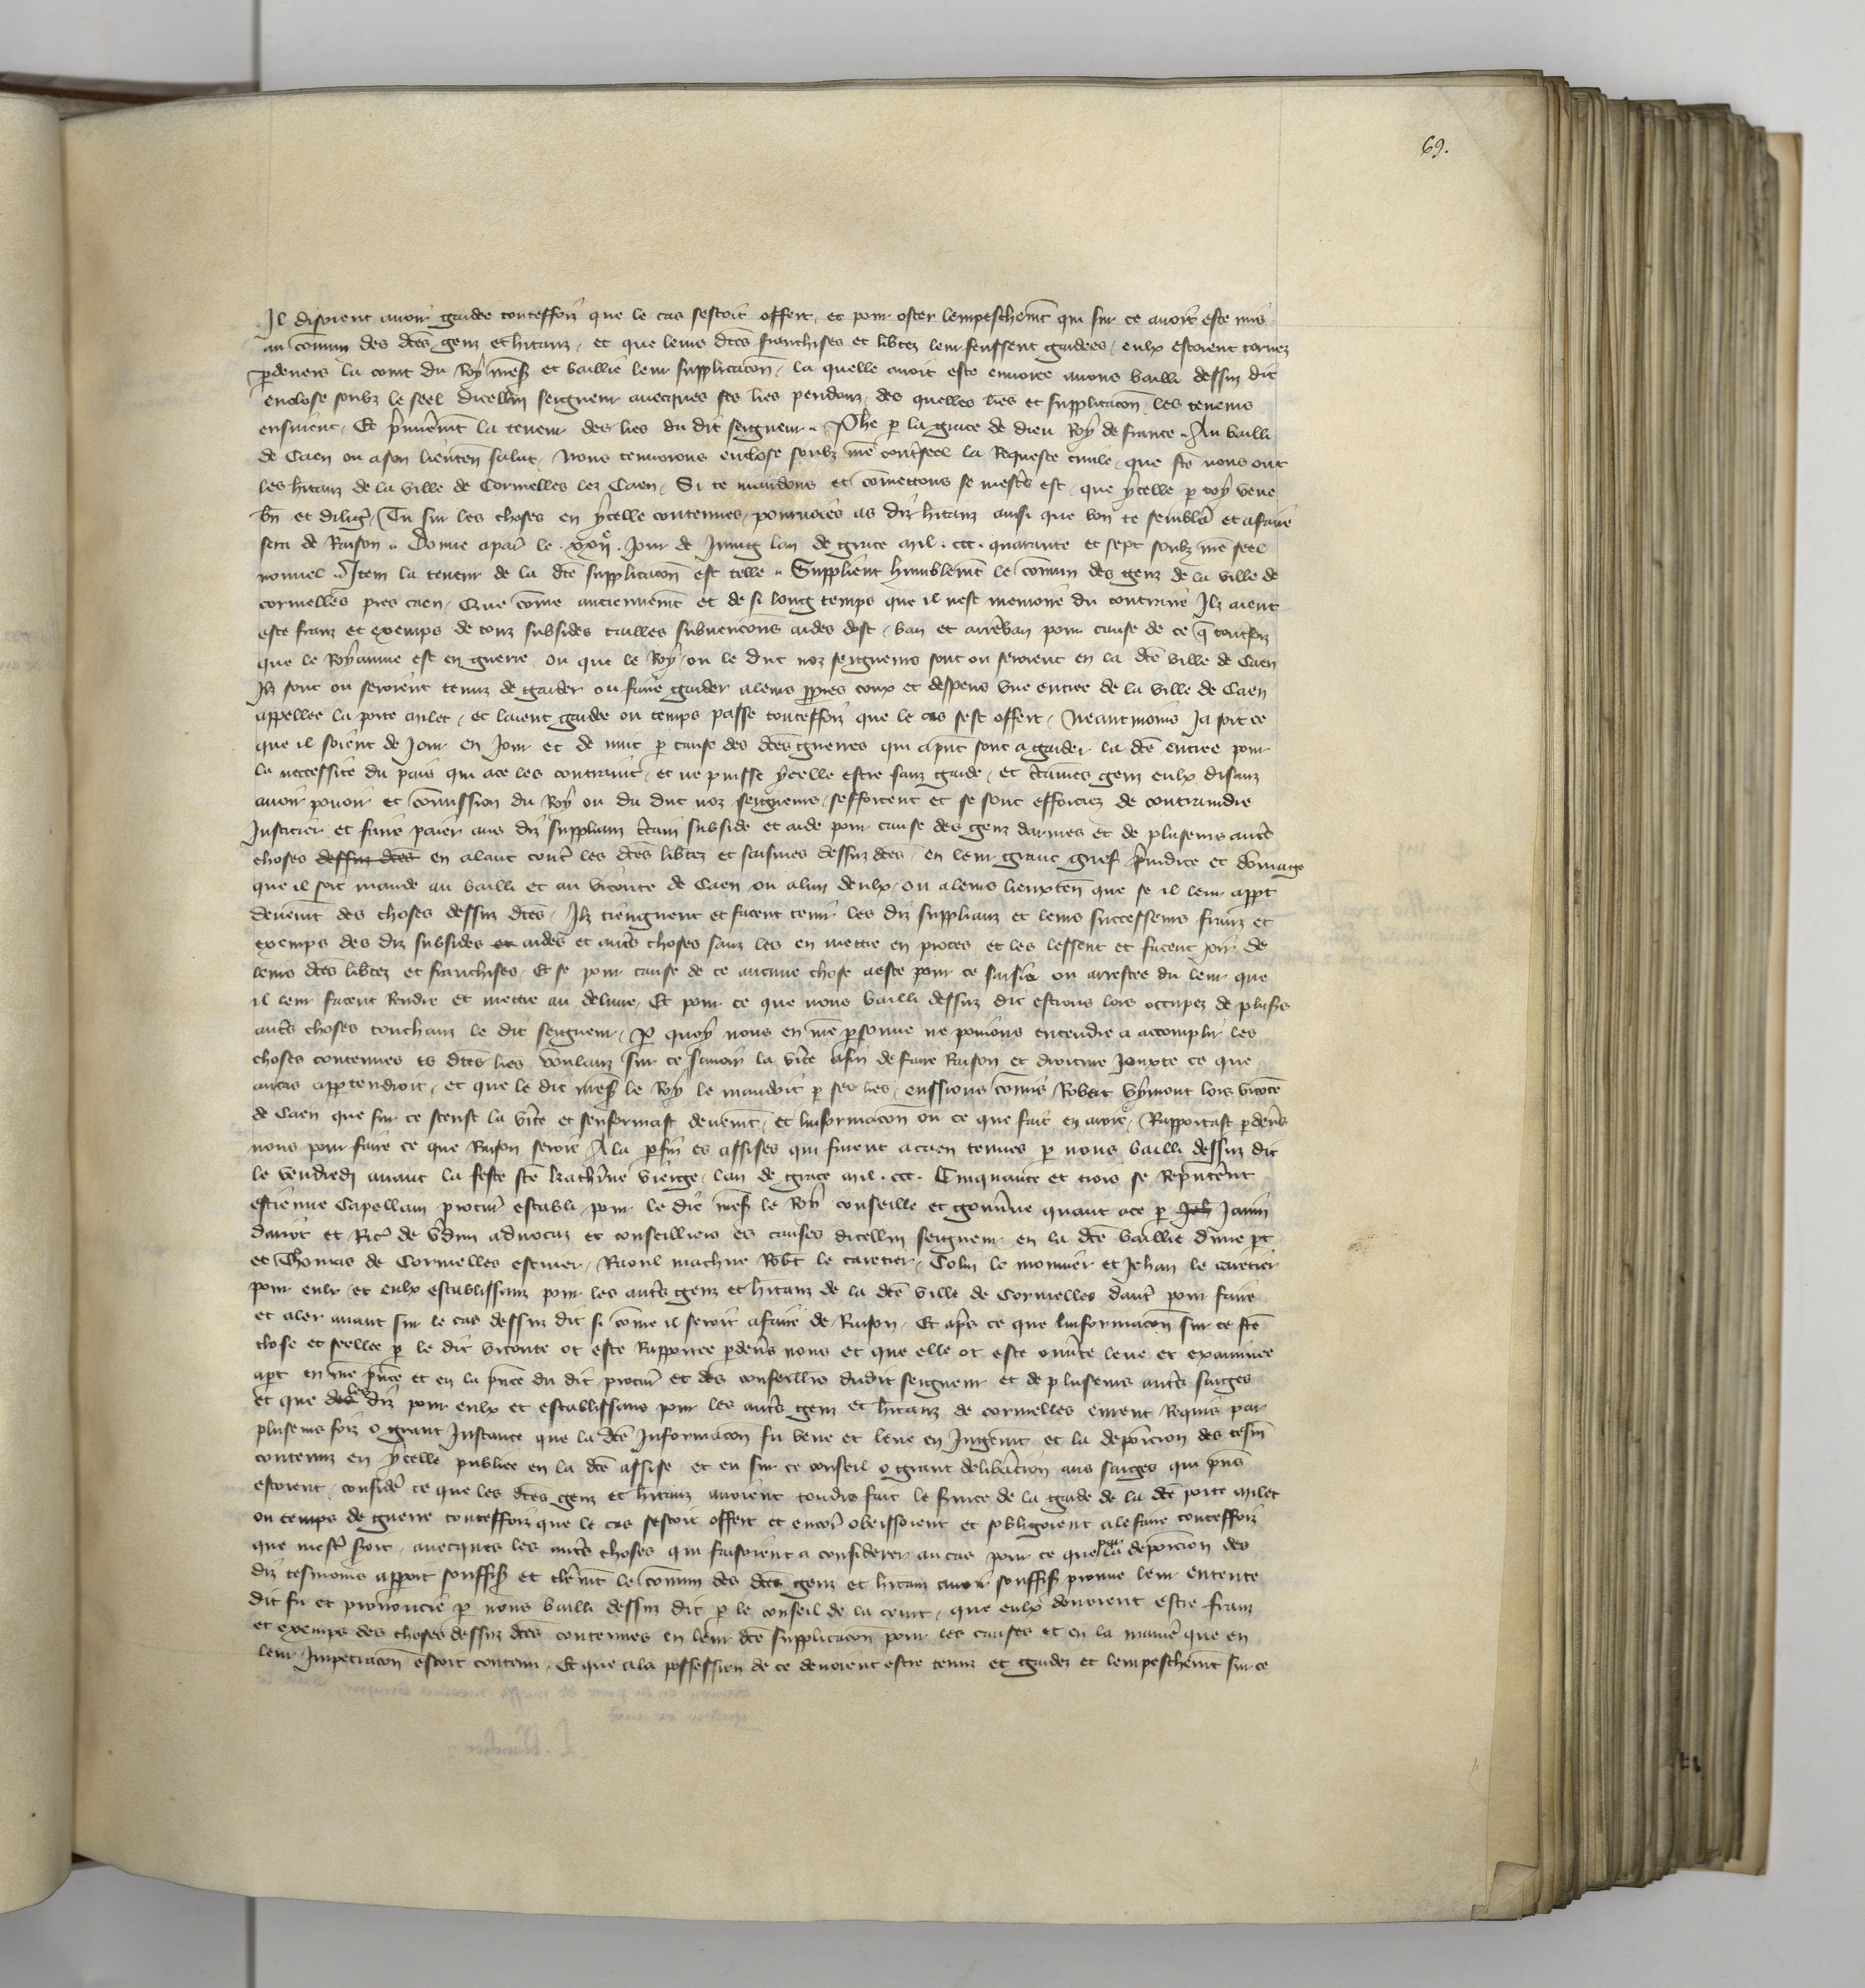 69.
Il disoient avoir gardee touteffoiz que le cas sestoit offert, et pour oster lempeschem̃t qui sur ce avoit este mis
au com̃un des d̃ces genz et h̃itanz, et que leurs d̃ces franchises et lib̃tez leur feussent gardees, eulx estoient tornez
p̃devers la court du Roy mess̃ et baillie leur supplicacõn, la quelle avoit este envoiee a nous bailli dessuz dit
enclose soubz le seel dicelluy seigneur avecques ses l̃res pendanz, des quelles l̃res et supplicacõn les teneurs
ensuient, Et p̃mierem̃t la teneur des l̃res du dit seigneur. Ph̃e p̃ la grace de dieu Roy de france. Au bailli
de Caen ou a son lieuten̄ salut, Nous tenvoions enclose soubz nr̃e cont̃seel la Requeste civile, que fc̃e nous ont
les h̃itanz de la ville de Cormelles lez Caen, Si te mandons et com̃ettons se mest̃s est, que ycelle p̃ toy veue
bn̄ et dilig̃, Tu sur les choses en ycelle contenues, pourvoies as diz h̃itanz ainsi que bon te sembl̃a et a faire
sera de Raison. Donne a par̃ le jour de Juing lan de grace mil. ccc. quarante et sept soubz nr̃e seel
nouvel. Item la teneur de la dc̃e supplicacõn est telle. Supplient humblem̃t le com̃un des genz de la ville de
cormelles pres caen, Que com̃e anciennem̃t et de si long temps que il nest memoire du contraire Ilz aient
este franz et exemps de touz subsides tailles subvencõns aides dost, ban et arrẽban pour cause de ce q̃ toutesfoiz
que le Royaume est en guerre, ou que le Roy, ou le duc noz seigneurs sont ou seroient en la dc̃e ville de Caen
Ilz sont ou seroient tenuz de garder ou faire garder a leurs pp̃res coux et despens une entree de la ville de Caen
appellee la porte milet, et laient gardee ou temps passe touteffoiz que le cas sest offert, Neantmoins Ja soit ce
que il soient de Jour en Jour et de nuit p̃ cause des dc̃es guerres qui a p̃nt sont a garder la dc̃e entree pour
la neccessite du pais qui a ce les contraint, et ne puisse ycelle estre sanz garde, et c̃taines genz eulx disanz
avoir povoir et com̃ission du Roy ou du duc noz seigneurs, sefforcent et se sont efforciez de contraindre
Justicier et faire paier aus diz suppliant c̃tain subside et aide pour cause des genz darmes et de pluseurs autr̃es
choses dessuz dc̃es en alant cont̃ les dc̃es lib̃tez et saisines dessuz dc̃es, en leur grant grief p̃iudice et dom̃age
que il soit mande au bailli et au viconte de Caen ou a lun deulx, ou a leurs lieuxten̄ que se il leur appt̃
deuem̃t des choses dessuz dc̃es, Ilz tiengnent et facent tenir les diz supplianz et leurs successeurs franz et
exemps des diz subsides et aides et autr̃es choses sanz les en mettre en proces et les lessent et facent joir de
leurs dc̃es lib̃tez et franchises, Et se pour cause de ce aucune chose a este pour ce saisie ou arrestee du leur que
il leur facent Rendre et mettre au delivre, Et pour ce que nous bailli dessuz dit estions lors occupez de plus̃rs
autr̃es choses touchanz le dit seigneur, P̃ quoy nous en nr̃e p̃sonne ne povions entendre a accomplir les
choses contenues es dc̃es l̃res voulanz sur ce savoir la v̄ite afin de faire Raison et droiture Jouxte ce que
au cas app̃tendroit, et que le dit mess̃ le Roy le mandoit p̃ ses l̃res, eussions com̃is Rob̃ert vymont lors vicont̃e
de Caen que sur ce sceust la v̄ite et senformast deuem̃t, et linformacõn ou ce que fait en aroit, Rapportast p̃deṽs
nous pour faire ce que Raison seroit, A la p̃fin es assises qui furent a caen tenues p̃ nous bailli dessuz dit
le vendredi avant la feste sc̃e kath̃ine vierge, lan de grace mil. ccc. Cinquante et trois se Rep̃ntẽrent
estienne Capellain procur̃ establi pour le dit mess̃ le Roy conseille et gouv̄ne quant a ce p̃ Jeh̃ Jamin
Davot et Ric̃ de advocaz et conseilliers es causes dicelluy seigneur en la dc̃e baillie dune pt̃
et Thomas de Cormelles escuier, Raoul machue Rob̃t le caretier, Colin le monnier et Jehan le caretier
pour eulx, et eulx establissanz pour les autr̃es genz et h̃itanz de la dc̃e ville de Cormelles daut̃ pour faire
et aler avant sur le cas dessuz dit si com̃e il seroit a faire de Raison, Et apr̃s ce que linformacõn sur ce fc̃e
close et seellee p̃ le dit viconte ot este Rapportee p̃deṽs nous et que elle ot este ouṽte leue et examinee
a pt̃ en nr̃e p̃nce et en la p̃nce du dit procur̃ et des conseillrs dudit seigneur et de pluseurs autr̃es saiges
et que des les diz pour eulx et establissans pour les autr̃es genz et h̃itanz de cormelles eurent Requis par
pluseurs foiz o grant Instance que la dc̃e Informacõn fu veue et leue en Jugem̃t et la deposicion des tesm̄
contenuz en ycelle publiee en la dc̃e assise et eu sur ce conseil o grant delib̃acion aus saiges qui p̃ns
estoient, consid̃e ce que les dc̃es genz et h̃itanz avoient toudis fait le s̃vice de la garde de la dc̃e porte milet
ou temps de guerre touteffoiz que le cas sestoit offert et encor̃ obeissoient et sobligoient a le faire touteffoiz
que mest̃ s̃roit, avecques les autr̃es choses qui faisoient a considerer au cas pour ce que par la deposicion des
diz tesmoins apparoit souffis̃ et cler̃em̃t le com̃un des dc̃es genz et h̃itanz avoir souffis̃ prouve leur entente
dit fu et prononcie p̃ nous bailli dessuz dit p̃ le conseil de la court, que eulx devoient estre franz
et exemps des choses dessuz dc̃es contenues en leur dc̃e supplicacõn pour les causes et en la manier̃ que en
leur Impetracõn estoit contenu, Et que a la possession de ce devoient estre tenuz et gardez et lempeschem̃t sur ce